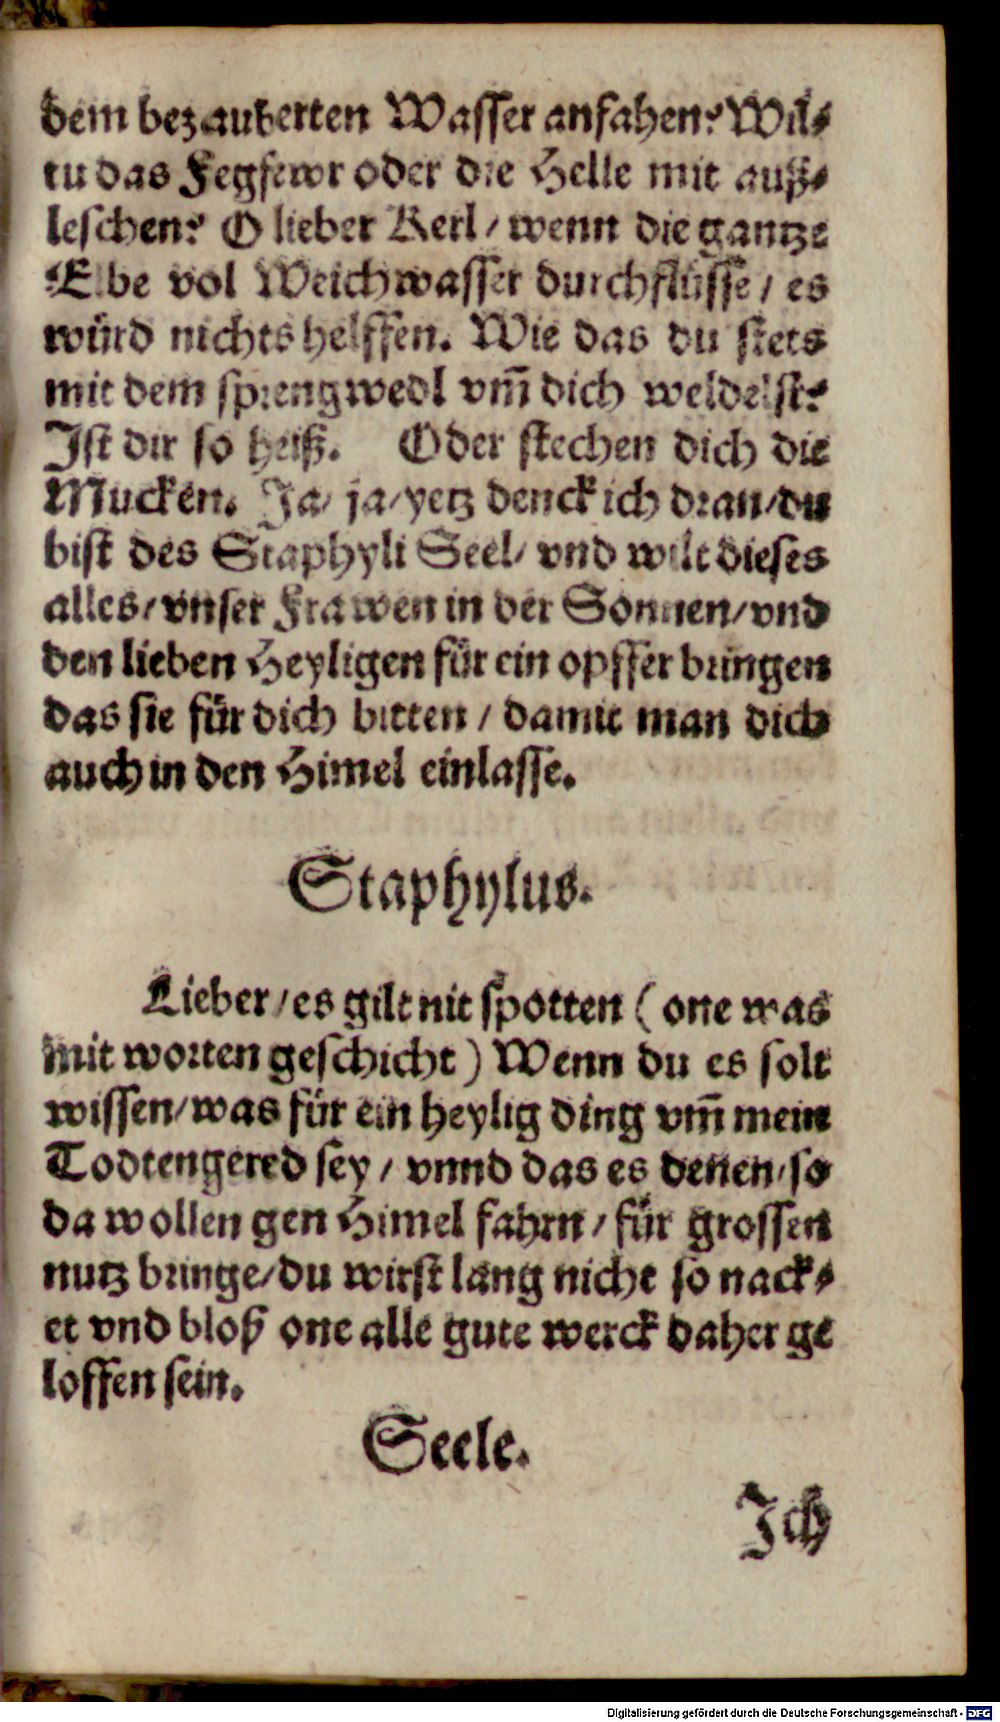 dem bezauberten Wasser anfahen? Wil⸗
tu das Fegfewr oder die Helle mit auß⸗
leschen? O lieber Kerl / wenn die gantze
Elbe vol Weichwasser durchflüsse / es
würd nichts helffen. Wie das du stets
mit dem sprengwedl vm̃ dich weldelst?
Ist dir so heiß. Oder stechen dich die
Mucken. Ja / ja / yetz denck ich dran / du
bist des Staphyli Seel / vnd wilt dieses
alles / vnser Frawen in der Sonnen / vnd
den lieben Heyligen für ein opffer bringen
das sie für dich bitten / damit man dich
auch in den Himel einlasse.
Staphylus.
Lieber / es gilt nit spotten ( one was
mit worten geschicht ) Wenn du es solt
wissen / was für ein heylig ding vm̃ mein
Todtengered sey / vnnd das es denen / so
da wollen gen Himel fahrn / für grossen
nutz bringe / du wirst lang nicht so nack⸗
et vnd bloß one alle gute werck daher ge
loffen sein.
Seele.
Ich
Digitalisierung gefördert durch die Deutsche Forschungsgemeinschaft - DFG